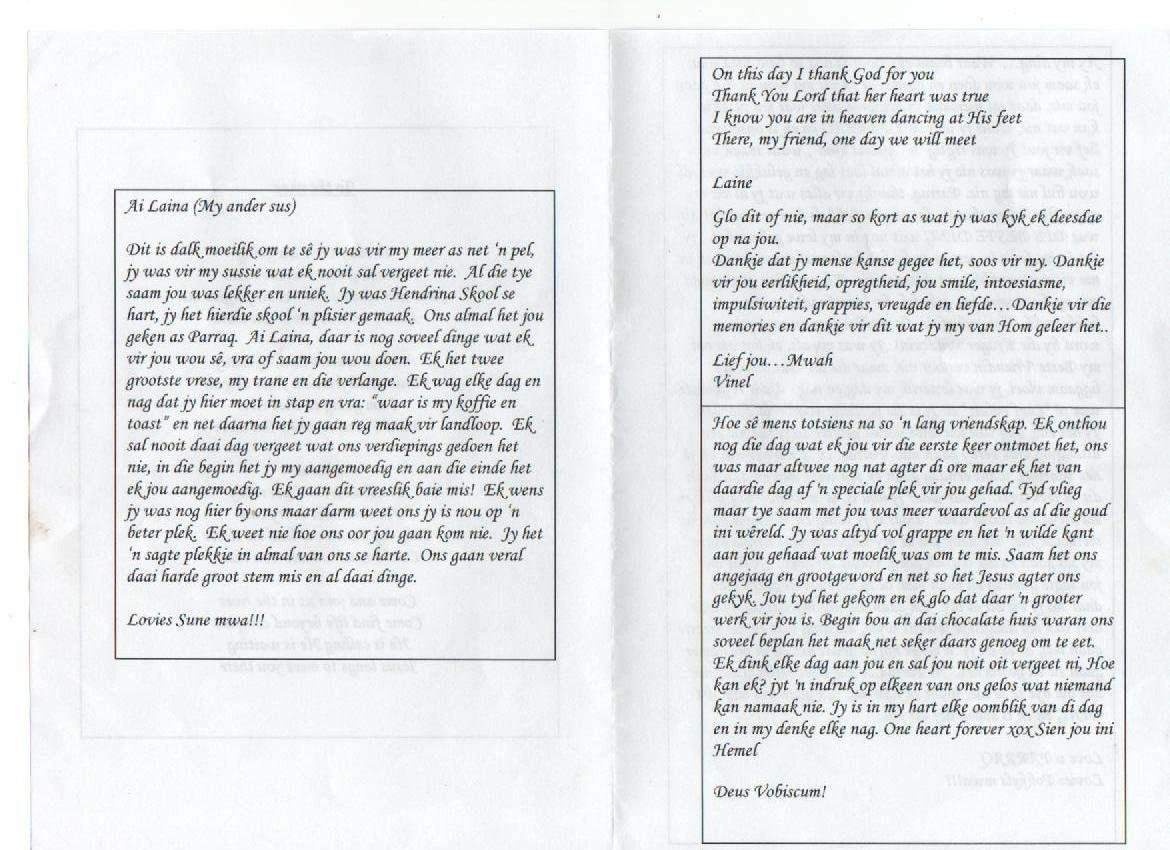 Ai Laina (My ander sus)
Dit is dalk moeilik om te sê jy was vir my meer as net 'n pel,
jy was vir my sussie wat ek nooit sal vergeet nie. Al die tye
saam jou was lekker en uniek. Jy was Hendrina Skool se
hart, jy het hierdie skool 'n plisier gemaak. Ons almal het jou
geken as Parraq. Ai Laina, daar is nog soveel dinge wat ek
vir jou wou sê, vra of saam jou wou doen. Ek het twee
grootste vrese, my trane en die verlange. Ek wag elke dag en
nag dat jy hier moet in stap en vra: "waar is my koffie en
toast" en net daarna het jy gaan reg maak vir landloop. Ek
sal nooit daai dag vergeet wat ons verdiepings gedoen het
nie, in die begin het jy my aangemoedig en aan die einde het
ek jou aangemoedig. Ek gaan dit vreeslik baie mis! Ek wens
jy was nog hier by ons maar darm weet ons jy is nou op 'n
beter plek. Ek weet nie hoe ons oor jou gaan kom nie. Jy het
'n sagte plekkie in almal van ons se harte. Ons gaan veral
daai harde groot stem mis en al daai dinge.
Lovies Sune mwa!!!
On this day I thank God for you
Thank You Lord that her heart was true
I know you are in heaven dancing at His feet
There, my friend, one day we will meet
Laine
Glo dit of nie, maar so kort as wat jy was kyk ek deesdae
op na jou.
Dankie dat jy mense kanse gegee het, soos vir my. Dankie
vir jou eerlikheid, opregtheid, jou smile, intoesiasme,
impulsiwiteit, grappies, vreugde en liefde...Dankie vir die
memories en dankie vir dit wat jy my van Hom geleer het..
Lief jou...Mwah
Vinel
Hoe sê mens totsiens na so 'n lang vriendskap. Ek onthou
nog die dag wat ek jou vir die eerste keer ontmoet het, ons
was maar altwee nog nat agter di ore maar ek het van
daardie dag af 'n speciale plek vir jou gehad. Tyd vlieg
maar tye saam met jou was meer waardevol as al die goud
ini wêreld. Jy was altyd vol grappe en het 'n wilde kant
aan jou gehaad wat moelik was om te mis. Saam het ons
angejaag en grootgeword en net so het Jesus agter ons
gekyk. Jou tyd het gekom en ek glo dat daar 'n grooter
werk vir jou is. Begin bou an dai chocolate huis waran ons
soveel beplan het maak net seker daars genoeg om te eet.
Ek dink elke dag aan jou en sal jou noit oit vergeet ni, Hoe
kan ek? jyt 'n indruk op elkeen van ons gelos wat niemand
kan namaak nie. Jy is in my hart elke oomblik van di dag
en in my denke elke nag. One heart forever xox Sien jou ini
Hemel
Deus Vobiscum!